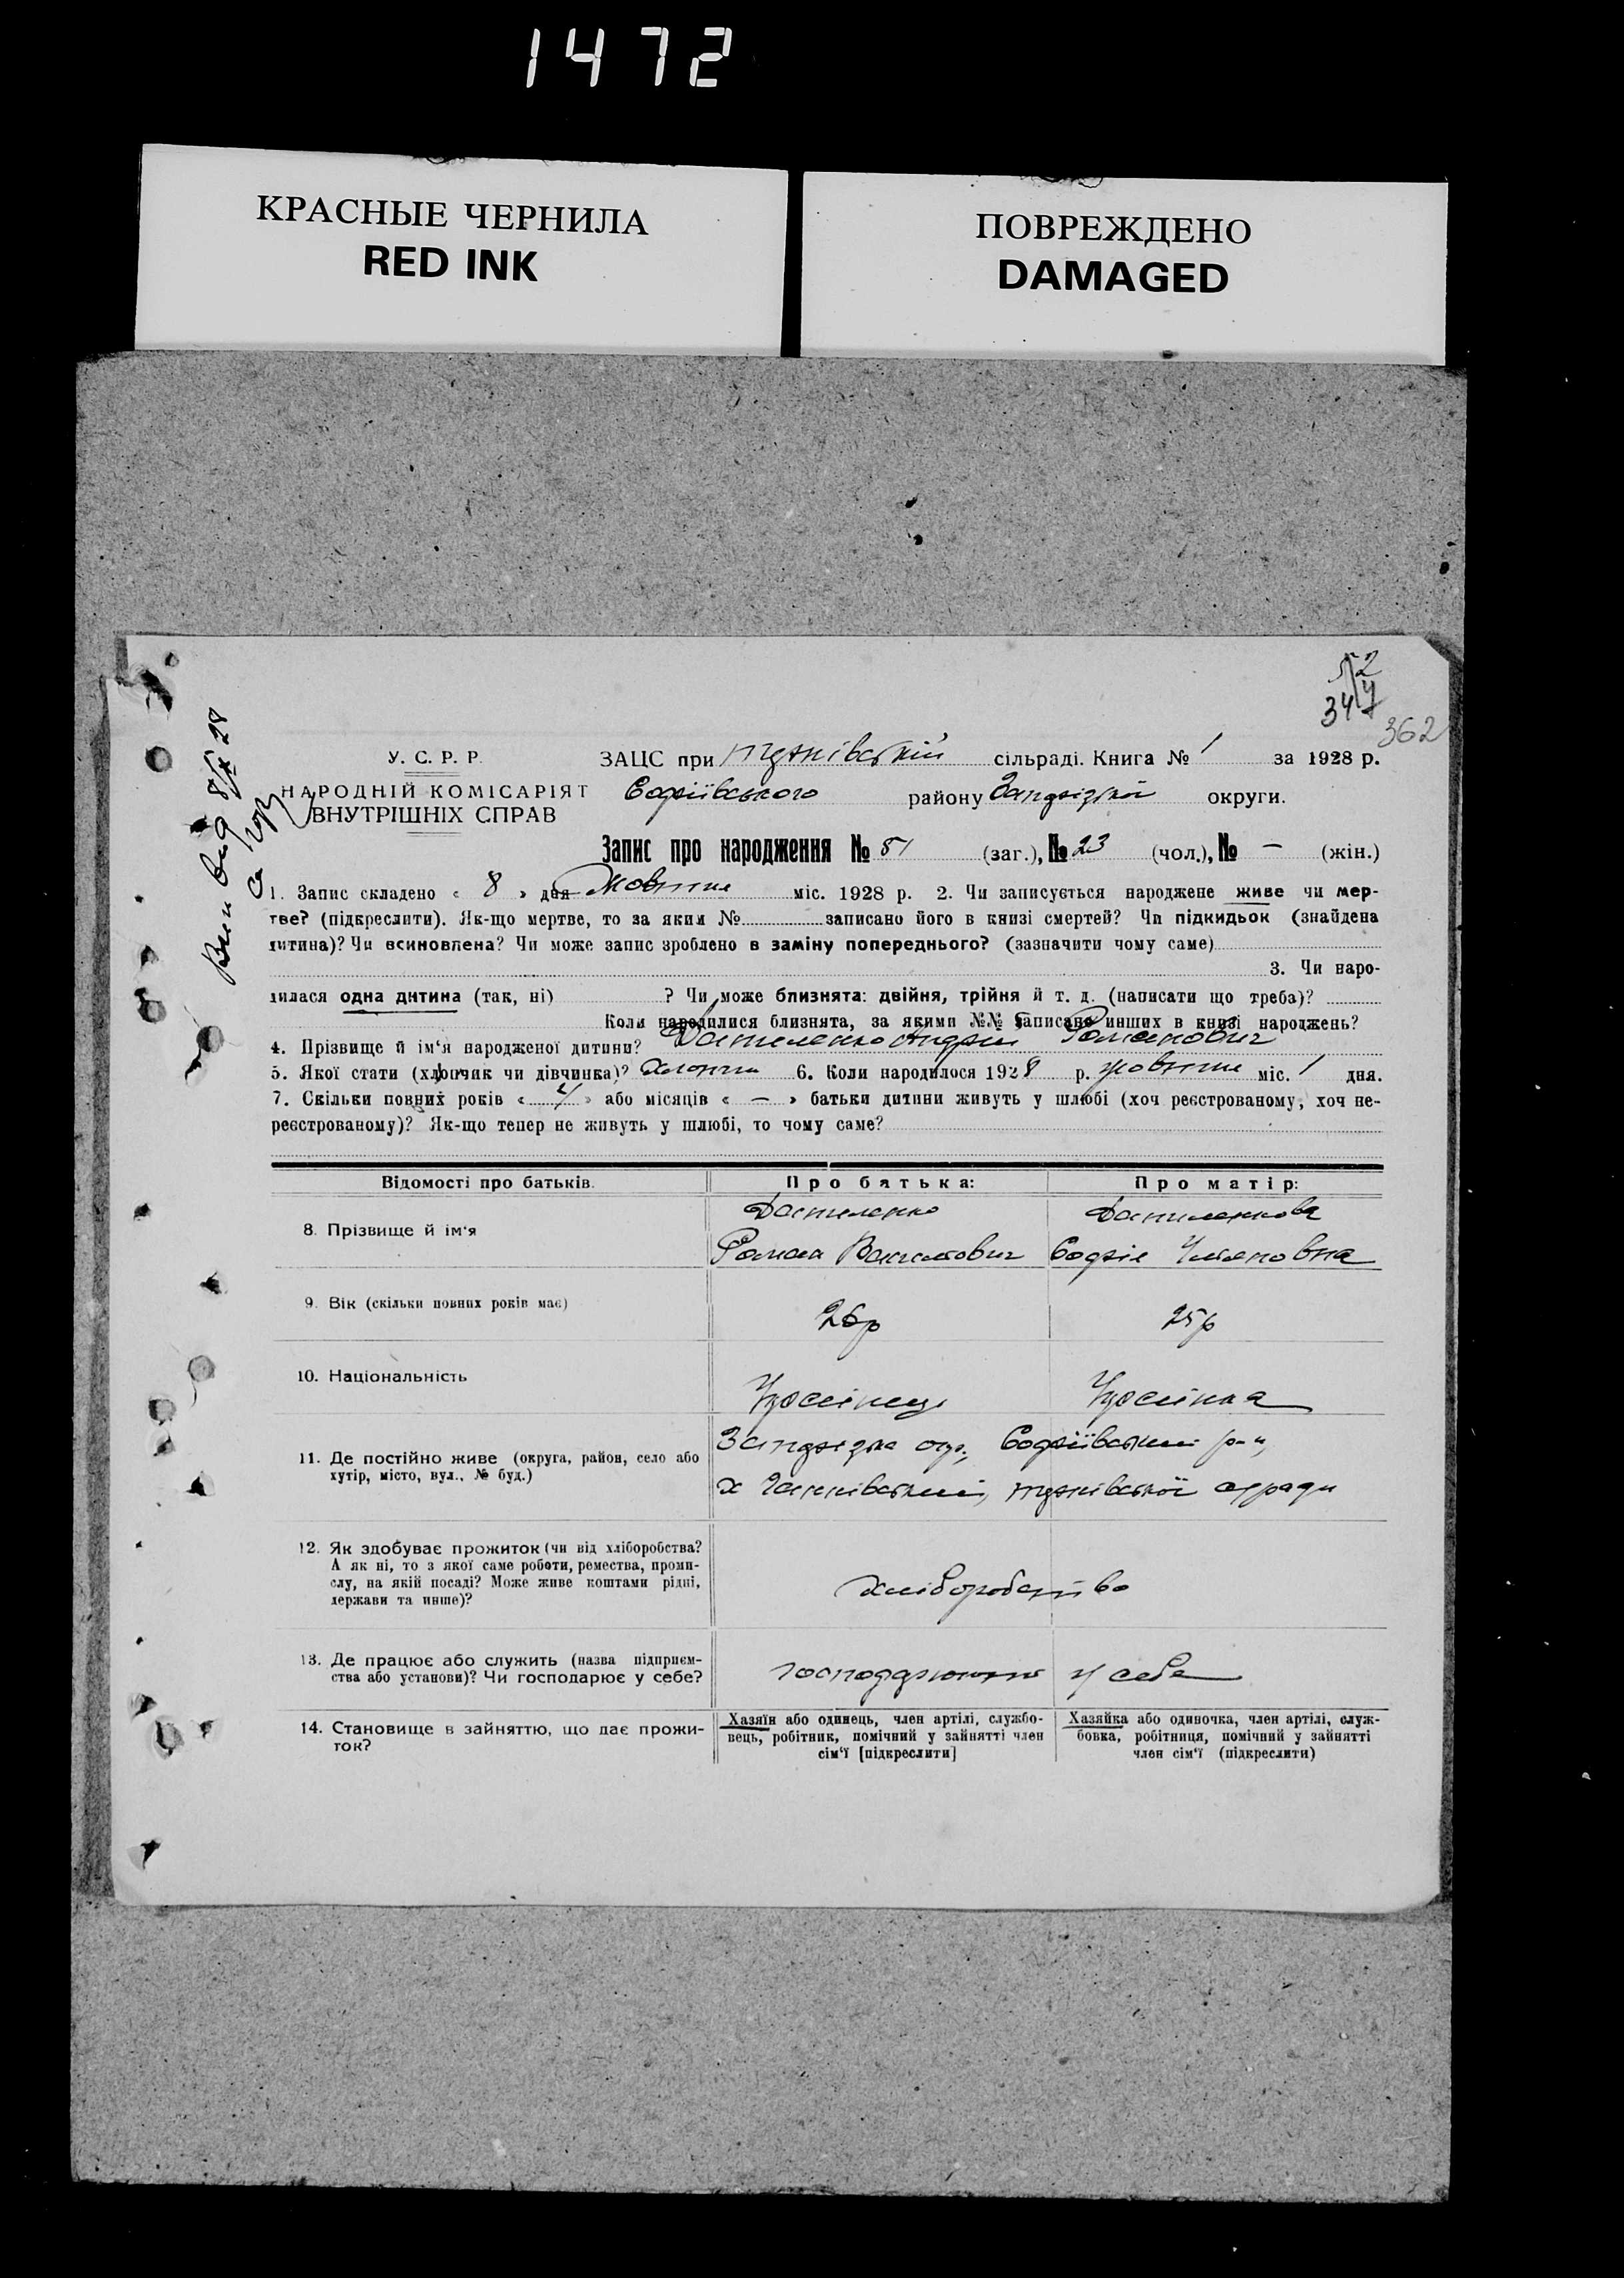 1472
КРАСНЫЕ ЧЕРНИЛА
RED INK
ПОВРЕЖДЕНО
DAMAGED
52
347
362
У. С. Р. Р.
НАРОДНІЙ КОМІСАРІЯТ
ВНУТРІШНІХ СПРАВ
ЗАЦС при сільраді. Книга № 1 за 1928 р.
Софіївського району округи.
Запис про народження № 51 (заг.), № 23 (чол.), № — (жін.)
1. Запис складено « 8 » дня Жовтня міс. 1928 р. 2. Чи записується народжене живе чи мер-
тве? (підкреслити). Як-що мертве, то за яким № записано його в книзі смертей? Чи підкидьок (знайдена
дитина)? Чи всиновлена? Чи може запис зроблено в заміну попереднього? (зазначити чому саме)
3. Чи наро-
дилася одна дитина (так, ні) ? Чи може близнята: двійня, трійня й т. д. (написати що треба)?
Коли народилися близнята, за якими №№ записано инших в книзі народжень?
4. Прізвище й ім'я народженої дитини? Даниленко Андрій Романович
5. Якої стати (хлопчик чи дівчинка)? 6. Коли народилося 1928 р. жовтня міс. 1 дня.
7. Скільки повних років « 4 » або місяців « — » батьки дитини живуть у шлюбі (хоч реєстрованому, хоч не-
реєстрованому)? Як-що тепер не живуть у шлюбі, то чому саме?
Відомості про батьків. Про батька: Про матір:
8. Прізвище й ім'я Даниленко Даниленкова
Роман Софія
9. Вік (скільки повних років має) 26 р 25 р
10. Національність Українець Українка
11. Де постійно живе (округа, район, село або
хутір, місто, вул., № буд.)
Софіївський р-н,
х Ганнівський,
12. Як здобуває прожиток (чи від хліборобства?
А як ні, то з якої саме роботи, ремества, проми-
слу, на якій посаді? Може живе коштами рідні,
держави та инше)?
хліборобство
13. Де працює або служить (назва підприєм-
ства або установи)? Чи господарює у себе?
господарюють у себе
14. Становище в зайняттю, що дає прожи-
ток?
Хазяїн або одинець, член артілі, службо-
вець, робітник, помічний у зайнятті член
сім'ї [підкреслити]
Хазяйка або одиночка, член артілі, служ-
бовка, робітниця, помічний у зайнятті
член сім'ї (підкреслити)